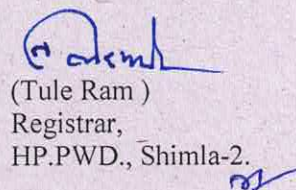 (Tule Ram )
Registrar,
HP.PWD., Shimla-2.